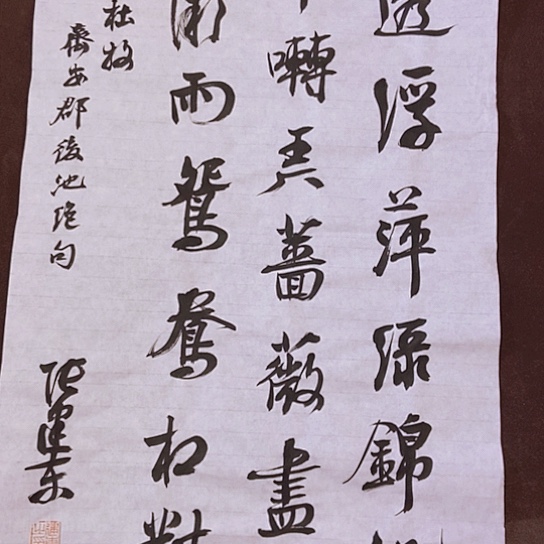 透浮萍緑錦
囀弄薔薇盡
微雨鴛鴦相對
杜牧
齊安郡後池絕句
张建东